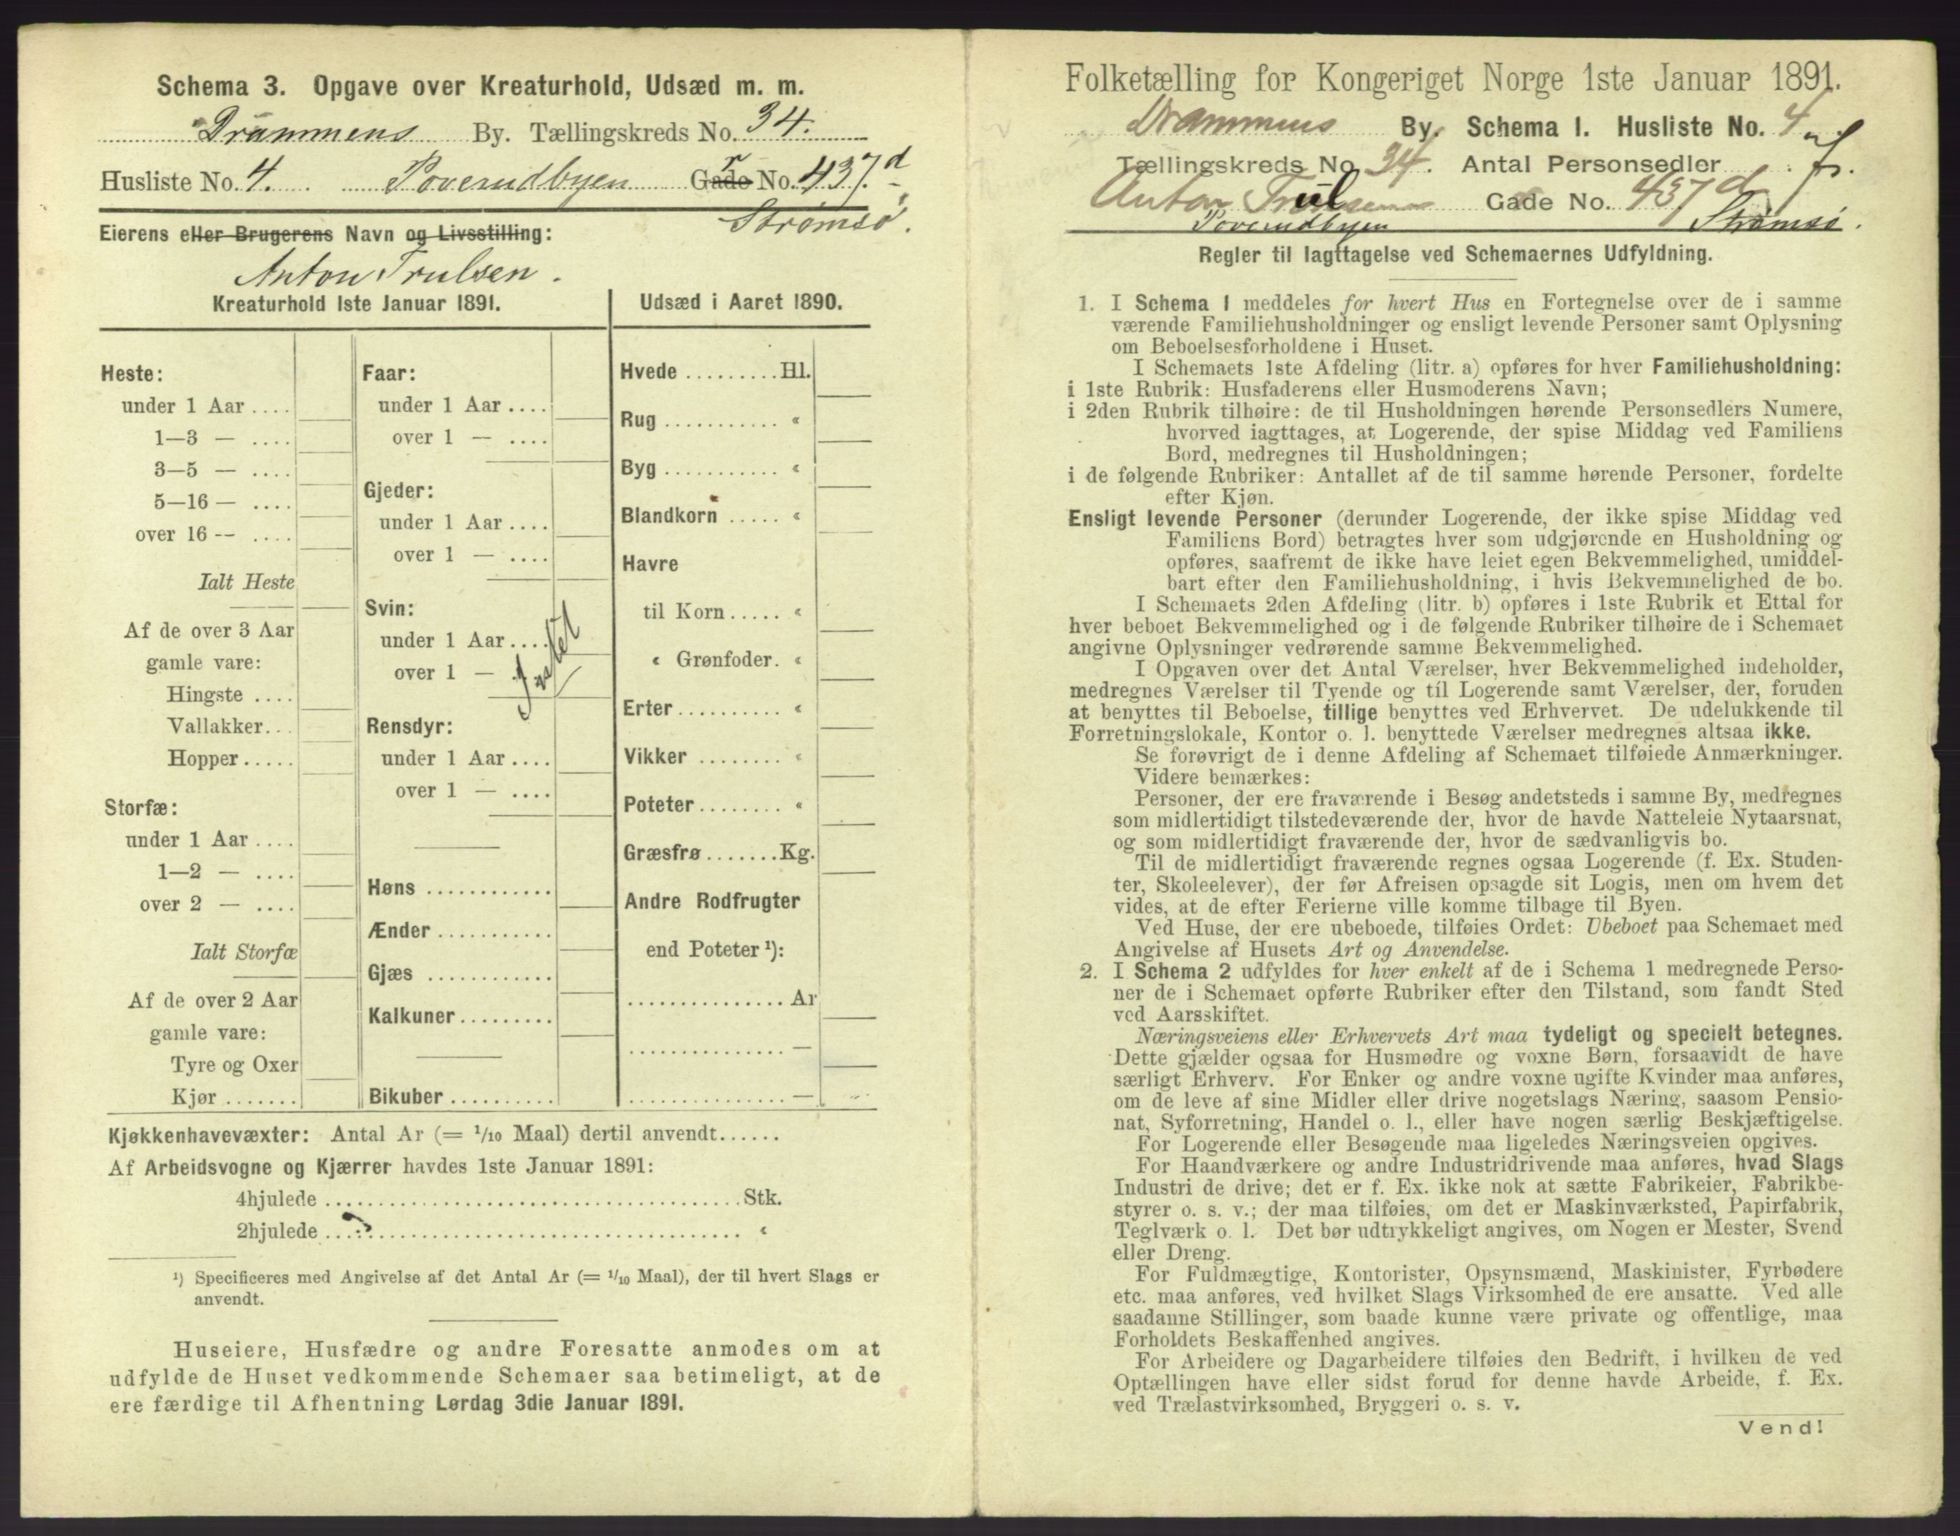 Schema 3. Opgave over Kreaturhold, Udsæd m. m.
Drammens By. Tællingskreds No. 34.
Husliste No. 4. Poverudbyen Gade No. 437 d
Strømsø.
Eierens eller Brugerens Navn og Livsstilling:
Anton Trulsen.
Kreaturhold 1ste Januar 1891.
Heste:
under 1 Aar ....
1—3 — ....
3—5 — ....
5—16 — ....
over 16 — ....
Ialt Heste
Af de over 3 Aar
gamle vare:
Hingste ....
Vallakker...
Hopper.....
Storfæ:
under 1 Aar ....
1—2 — ....
over 2 — ....
Ialt Storfæ
Af de over 2 Aar
gamle vare:
Tyre og Oxer
Kjør .......
Faar:
under 1 Aar ....
over 1 — ....
Gjeder:
under 1 Aar ....
over 1 — ....
Svin:
under 1 Aar ....
over 1 —
Rensdyr:
under 1 Aar ....
over 1 — ....
Høns ............
Ænder ...........
Gjæs ............
Kalkuner.........
Bikuber ..........
Udsæd i Aaret 1890.
Hvede .........Hl.
Rug ........... «
Byg ........... «
Blandkorn ..... «
Havre
til Korn..... «
« Grønfoder. «
Erter.......... «
Vikker ........ «
Poteter........ «
Græsfrø.......Kg.
Andre Rodfrugter
end Poteter ¹):
............... Ar
............... —
............... —
Kjøkkenhavevæxter: Antal Ar (= 1/10 Maal) dertil anvendt......
Af Arbeidsvogne og Kjærrer havdes 1ste Januar 1891:
4hjulede ........................................Stk.
2hjulede ........................................ «
¹) Specificeres med Angivelse af det Antal Ar (= 1/10 Maal), der til hvert Slags er
anvendt.
Huseiere, Husfædre og andre Foresatte anmodes om at
udfylde de Huset vedkommende Schemaer saa betimeligt, at de
ere færdige til Afhentning Lørdag 3die Januar 1891.
Folketælling for Kongeriget Norge 1ste Januar 1891.
Drammens By. Schema 1. Husliste No. 4
Tællingskreds No. 34. Antal Personsedler
Anton Gade No. 437 d
Poverudbyen Strømsø.
Regler til Iagttagelse ved Schemaernes Udfyldning.
1. I Schema 1 meddeles for hvert Hus en Fortegnelse over de i samme
værende Familiehusholdninger og ensligt levende Personer samt Oplysning
om Beboelsesforholdene i Huset.
I Schemaets 1ste Afdeling (litr. a) opføres for hver Familiehusholdning:
i 1ste Rubrik: Husfaderens eller Husmoderens Navn;
i 2den Rubrik tilhøire: de til Husholdningen hørende Personsedlers Numere,
hvorved iagttages, at Logerende, der spise Middag ved Familiens
Bord, medregnes til Husholdningen;
i de følgende Rubriker: Antallet af de til samme hørende Personer, fordelte
efter Kjøn.
Ensligt levende Personer (derunder Logerende, der ikke spise Middag ved
Familiens Bord) betragtes hver som udgjørende en Husholdning og
opføres, saafremt de ikke have leiet egen Bekvemmelighed, umiddel-
bart efter den Familiehusholdning, i hvis Bekvemmelighed de bo.
I Schemaets 2den Afdeling (litr. b) opføres i 1ste Rubrik et Ettal for
hver beboet Bekvemmelighed og i de følgende Rubriker tilhøire de i Schemaet
angivne Oplysninger vedrørende samme Bekvemmelighed.
I Opgaven over det Antal Værelser, hver Bekvemmelighed indeholder,
medregnes Værelser til Tyende og til Logerende samt Værelser, der, foruden
at benyttes til Beboelse, tillige benyttes ved Erhvervet. De udelukkende til
Forretningslokale, Kontor o. l. benyttede Værelser medregnes altsaa ikke.
Se forøvrigt de i denne Afdeling af Schemaet tilføiede Anmærkninger.
Videre bemærkes:
Personer, der ere fraværende i Besøg andetsteds i samme By, medregnes
som midlertidigt tilstedeværende der, hvor de havde Natteleie Nytaarsnat,
og som midlertidigt fraværende der, hvor de sædvanligvis bo.
Til de midlertidigt fraværende regnes ogsaa Logerende (f. Ex. Studen-
ter, Skoleelever), der før Afreisen opsagde sit Logis, men om hvem det
vides, at de efter Ferierne ville komme tilbage til Byen.
Ved Huse, der ere ubeboede, tilføies Ordet: Ubeboet paa Schemaet med
Angivelse af Husets Art og Anvendelse.
2. I Schema 2 udfyldes for hver enkelt af de i Schema 1 medregnede Perso-
ner de i Schemaet opførte Rubriker efter den Tilstand, som fandt Sted
ved Aarsskiftet.
Næringsveiens eller Erhvervets Art maa tydeligt og specielt betegnes.
Dette gjælder ogsaa for Husmødre og voxne Børn, forsaavidt de have
særligt Erhverv. For Enker og andre voxne ugifte Kvinder maa anføres,
om de leve af sine Midler eller drive nogetslags Næring, saasom Pensio-
nat, Syforretning, Handel o. l., eller have nogen særlig Beskjæftigelse.
For Logerende eller Besøgende maa ligeledes Næringsveien opgives.
For Haandværkere og andre Industridrivende maa anføres, hvad Slags
Industri de drive; det er f. Ex. ikke nok at sætte Fabrikeier, Fabrikbe-
styrer o. s. v.; der maa tilføies, om det er Maskinværksted, Papirfabrik,
Teglværk o. l. Det bør udtrykkeligt angives, om Nogen er Mester, Svend
eller Dreng.
For Fuldmægtige, Kontorister, Opsynsmænd, Maskinister, Fyrbødere
etc. maa anføres, ved hvilket Slags Virksomhed de ere ansatte. Ved alle
saadanne Stillinger, som baade kunne være private og offentlige, maa
Forholdets Beskaffenhed angives.
For Arbeidere og Dagarbeidere tilføies den Bedrift, i hvilken de ved
Optællingen have eller sidst forud for denne havde Arbeide, f. Ex.
ved Trælastvirksomhed, Bryggeri o. s. v.
Vend!